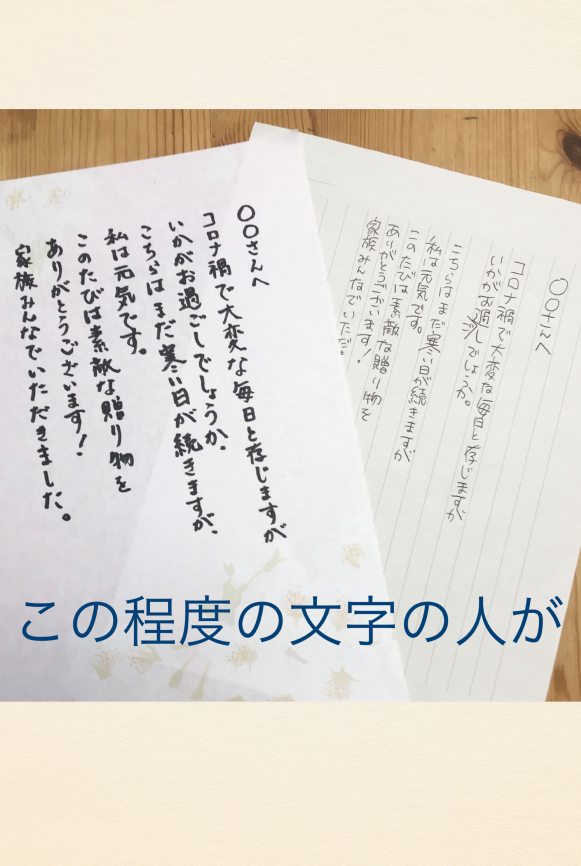 〇〇さんへ
コロナ禍で大変な毎日と存じますが
いかがお過ごしでしょうか。
こちらはまだ寒い日が続きますが、
私は元気です。
このたびは素敵な贈り物を
ありがとうございます!
家族みんなでいただきました。
〇〇さんへ
コロナ禍で大変な毎日と存じますが
いかがお過しでしょうか。
こちらはまだ寒い日が続きますが
私は元気です。
このたびは素敵な贈り物を
ありがとうございます!
家族みんなでいただ
この程度の文字の人が